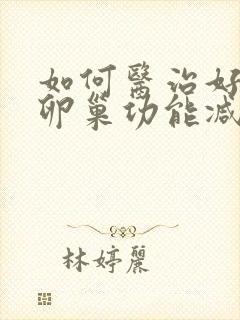 如何醫治好
卵巢功能減
林婷麗